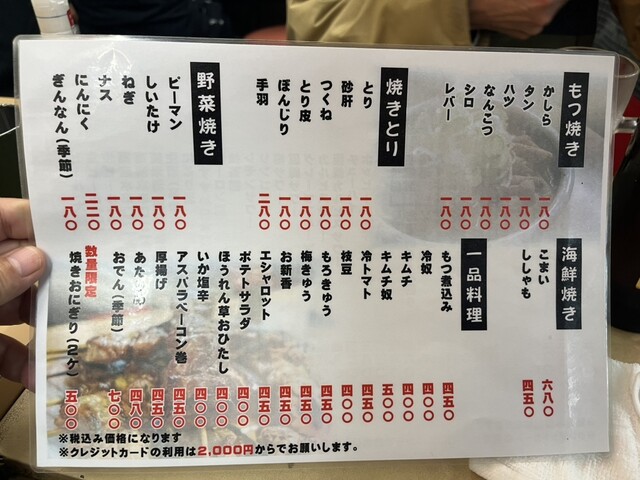 もつ焼き
かしら 一八〇
タン 一八〇
ハツ 一八〇
なんこつ 一八〇
シロ 一八〇
レバー 一八〇
焼きとり
とり 一八〇
砂肝 一八〇
つくね 一八〇
とり皮 一八〇
ぼんじり 一八〇
手羽 二八〇
野菜焼き
ピーマン 一八〇
しいたけ 一八〇
ねぎ 一八〇
ナス 一八〇
にんにく 二二〇
ぎんなん（季節） 一八〇
海鮮焼き
こまい 六八〇
ししゃも 四五〇
一品料理
もつ煮込み 四五〇
冷奴 四〇〇
キムチ 四〇〇
キムチ奴 五〇〇
冷トマト 四〇〇
枝豆 四〇〇
もろきゅう 四五〇
梅きゅう 四五〇
お新香 四五〇
エシャロット 四五〇
ポテトサラダ 四〇〇
ほうれん草おひたし 四〇〇
いか塩辛 四〇〇
アスパラベーコン巻 四五〇
厚揚げ 四五〇
四八〇
おでん（季節） 七〇〇
数量限定
焼きおにぎり（2ケ） 五〇〇
※税込み価格になります
※クレジットカードの利用は2,000円からでお願いします。